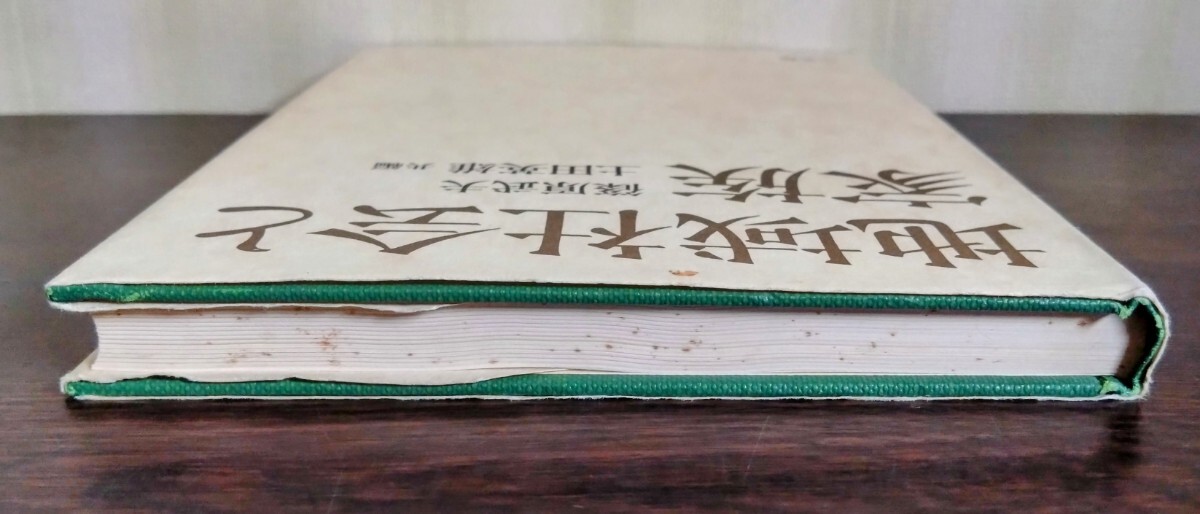 地域社会と
家族
篠原武夫
土田英雄 共編